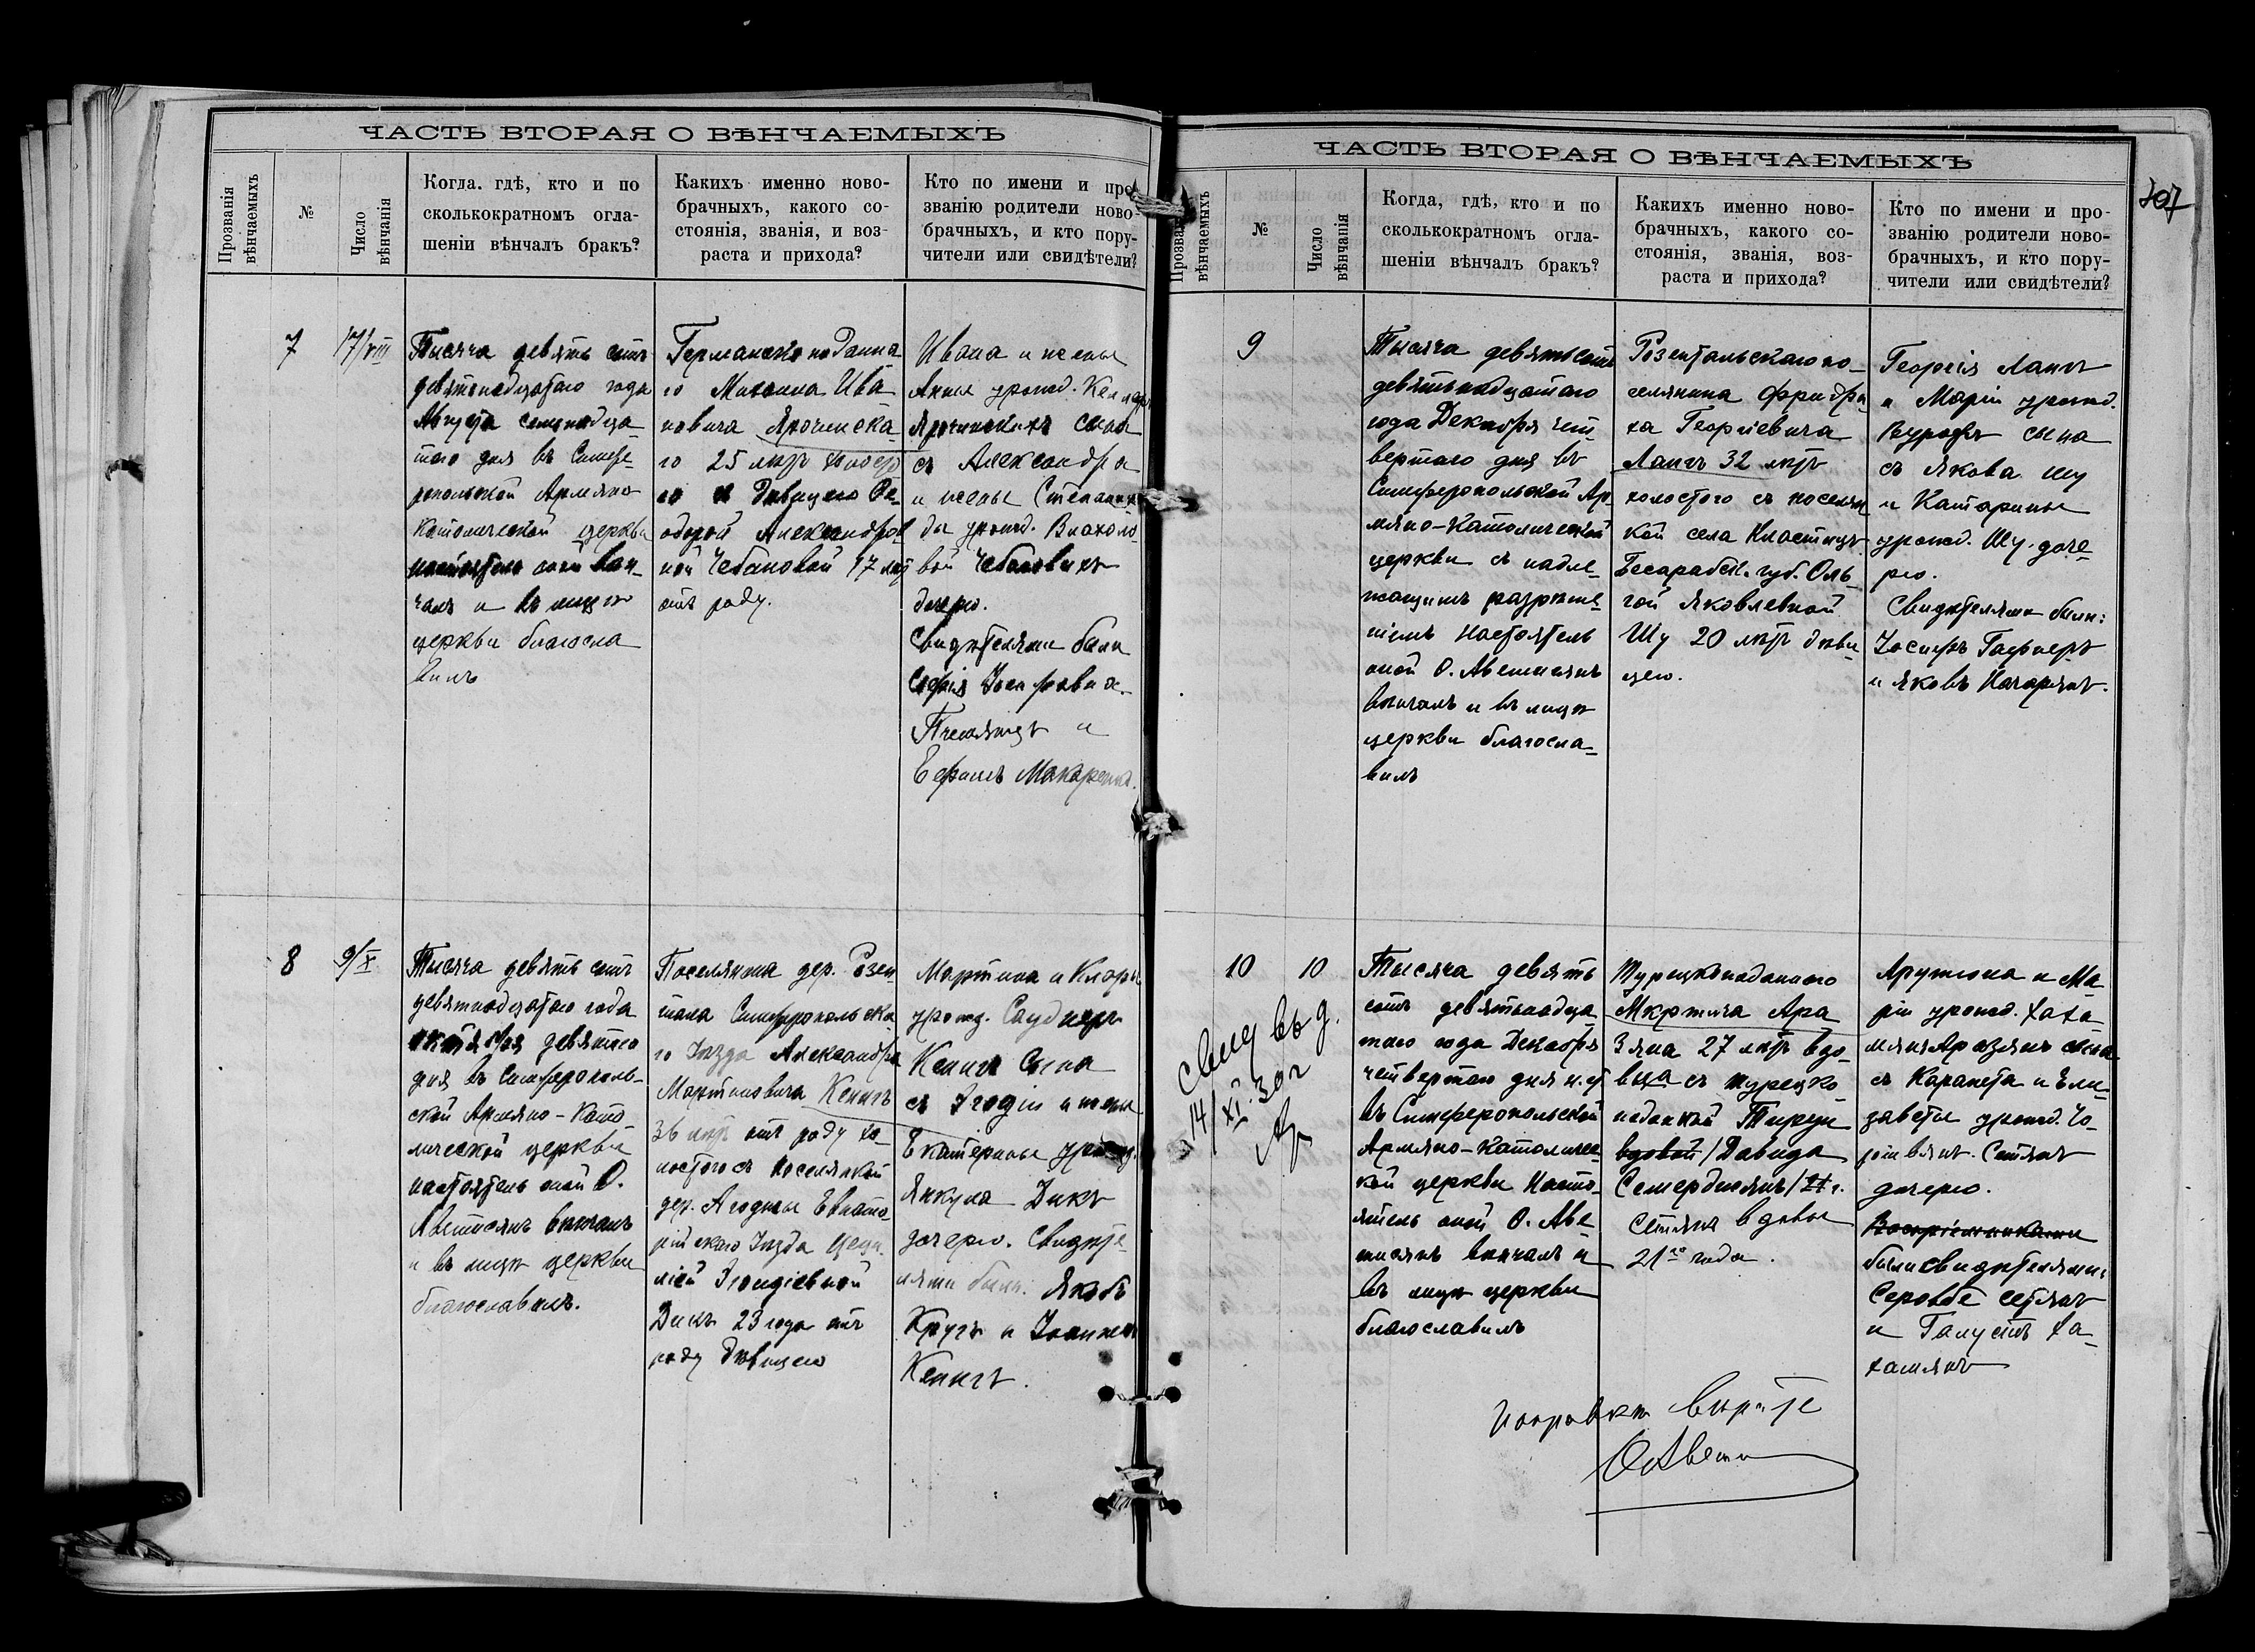 ЧАСТЬ ВТОРАЯ О ВѢНЧАЕМЫХЪ
Прозванія вѣнчаемыхъ
№
Число вѣнчанія
Когда. гдѣ, кто и по
сколькократномъ огла-
шеніи вѣнчалъ бракъ?
Каихъ именно ново-
брачныхъ, какого со-
стоянія, званія, и воз-
раста и прихода?
Кто по имени и про-
званію родители ново-
брачныхъ, и кто пору-
чители или свидѣтели?
7
17/VIII
Тысяча девять сотъ
девятнадцатаго года
Августа семнадца-
таго дня въ Симфе-
ропольской Армяно
Католической церкви
настоятель оной вѣн-
чалъ и въ лицѣ
церкви благосла
вилъ
Германско поддана
го Михаила Ива
новича Ярочинска-
го 25 лѣтъ
съ дѣвицею Ѳе-
одорой Александров
ной Чебановой 17 лѣтъ
отъ роду.
Ивана и жены
Анны урожд.
Ярочинскихъ сына
съ Александра
и жены Степанида
ды урожд.
вой Чебановыхъ
дочерью.
Свидѣтелями были
Софія Іосифовна
и
Ефимъ Макаренко.
8
9/X
Тысяча девять сотъ
девятнадцатаго года
октября девятаго
дня въ Симферополь-
ской Армяно-Като
лической церкви
настоятель оной О.
Аветисянъ вѣнчалъ
и въ лицѣ церкви
благославилъ.
Поселянина дер. Розен
таля Симферопольска
го Уѣзда Александра
Мартиновича Кенигъ
36 лѣтъ отъ роду хо-
лостого съ поселянкой
дер. Агоджы Евпато-
рійскаго Уѣзда Цеци
ліей Эгидіевной
Дикъ 23 года отъ
роду дѣвицею
Мартина и Клоры
урожд. Сауднеръ
Кенигъ сына
съ Эгидія и жены
Екатерины урожд.
Янкула Дикъ
дочерью. Свидѣте-
лями были: Якобъ
Кругъ и Іоаннесъ
Кенигъ.
ЧАСТЬ ВТОРАЯ О ВѢНЧАЕМЫХЪ
107
Прозванія вѣнчаемыхъ
№
Число вѣнчанія
Когда, гдѣ, кто и по
сколькократномъ огла-
шеніи вѣнчалъ бракъ?
Какихъ именно ново-
брачныхъ, какого со-
стоянія, званія, воз-
раста и прихода?
Кто по имени и про-
званію родители ново-
брачныхъ, и кто пору-
чители или свидѣтели?
9
Тысяча девятьсотъ
девятьнадцатаго
года Декабря чет
вертаго дня въ
Симферопольской Ар
мяно-Католической
церкви съ надле-
жащимъ разрѣше-
ніемъ настоятель
оной О. Аветисянъ
вѣнчалъ и въ лицѣ
церкви благосла-
вилъ
Розентальскаго по-
селянина Фридри
ха Георгіевича
Лангъ 32 лѣтъ
холостого съ поселян
кой села Кластицъ
Бесарабск. губ. Оль-
гой Яковлевной
Шу 20 лѣтъ дѣви
цею.
Георгія Лангъ
и Маріи урожд.
сына
съ Якова Шу
и Катарины
урожд. Шу-доче-
рью.
Свидѣтелями были:
Іосифъ Гафнеръ
и Яковъ
10
10
Свид въ д.
14/XI 30г
Тысяча девять
сотъ девятьнадца
таго года Декабря
четвертаго дня н.ст
въ Симферопольской
Армяно-Католичес
кой церкви насто-
ятель оной О. Аве
тисянъ вѣнчалъ и
въ лицѣ церкви
благославилъ
Турецкоподаннаго
Мкртича Ара
зяна 27 лѣтъ вдо-
вца съ турецко
поданной Тируи
вдовой /Давида
Семерджіянъ/ 21 г.
Сетянъ вдовы
21го года.
Арутюна и Ма
ріи урожд. Хаха-
млянъ Аразянъ сына
съ Карапета и Ели-
заветы урожд.
Сетянъ
дочерью.
Воспріемниками
были свидѣтелями:
Серовбе Сетянъ
и Галустъ Ха-
хамлянъ
поправкѣ вѣрьте
О Авети